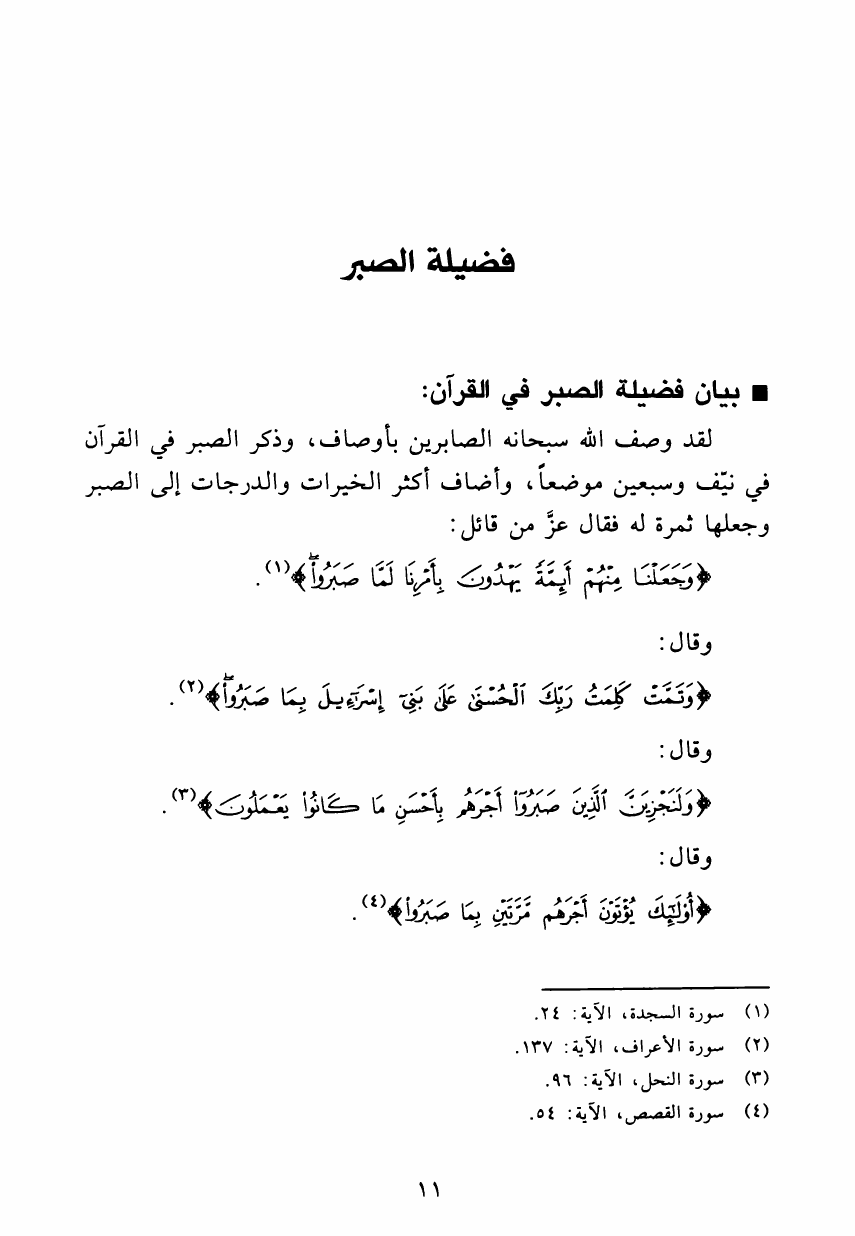 فضيلة الصبر
■ بيان فضيلة الصبر في القرآن:
لقد وصف الله سبحانه الصابرين بأوصاف، وذكر الصبر في القرآن
في نيّف وسبعين موضعاً، وأضاف أكثر الخيرات والدرجات إلى الصبر
وجعلها ثمرة له فقال عزَّ من قائل:
﴿وَجَعَلْنَا مِنْهُمْ أَئِمَّةً يَهْدُونَ بِأَمْرِنَا لَمَّا صَبَرُواْۖ﴾(١).
وقال:
﴿وَتَمَّتْ كَلِمَتُ رَبِّكَ ٱلْحُسْنَىٰ عَلَىٰ بَنِىٓ إِسْرَٰٓءِيلَ بِمَا صَبَرُواْۖ﴾(٢).
وقال:
﴿وَلَنَجْزِيَنَّ ٱلَّذِينَ صَبَرُوٓاْ أَجْرَهُم بِأَحْسَنِ مَا كَانُواْ يَعْمَلُونَ﴾(٣).
وقال:
﴿أُوْلَٰٓئِكَ يُؤْتَوْنَ أَجْرَهُم مَّرَّتَيْنِ بِمَا صَبَرُواْ﴾(٤).
(١) سورة السجدة، الآية: ٢٤.
(٢) سورة الأعراف، الآية: ١٣٧.
(٣) سورة النحل، الآية: ٩٦.
(٤) سورة القصص، الآية: ٥٤.
١١